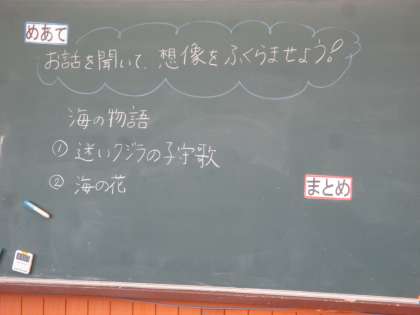 めあて
お話を聞いて、想像をふくらませよう!
海の物語
① 迷いクジラの子守歌
② 海の花
まとめ